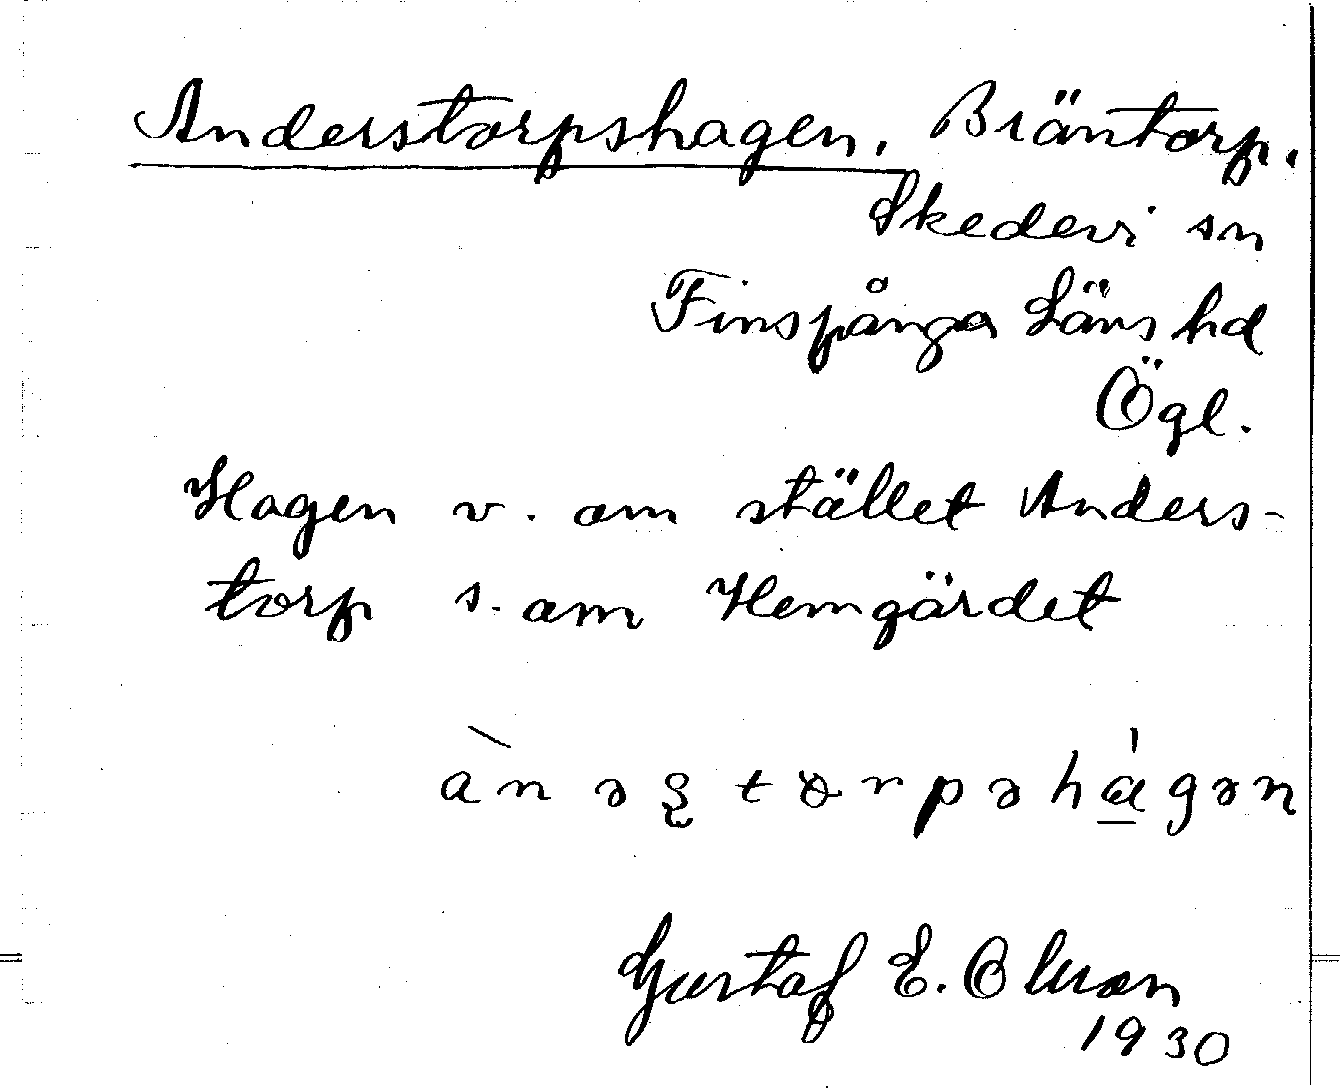 Anderstorpshagen, Bräntorp.
Skedevi sn
Finspånga Läns hd
Ögl.
Hagen v. om stället Anders-
torp s. om Hemgärdet
ànəʂtɔrpəhágən
Gustaf E. Olsson
1930